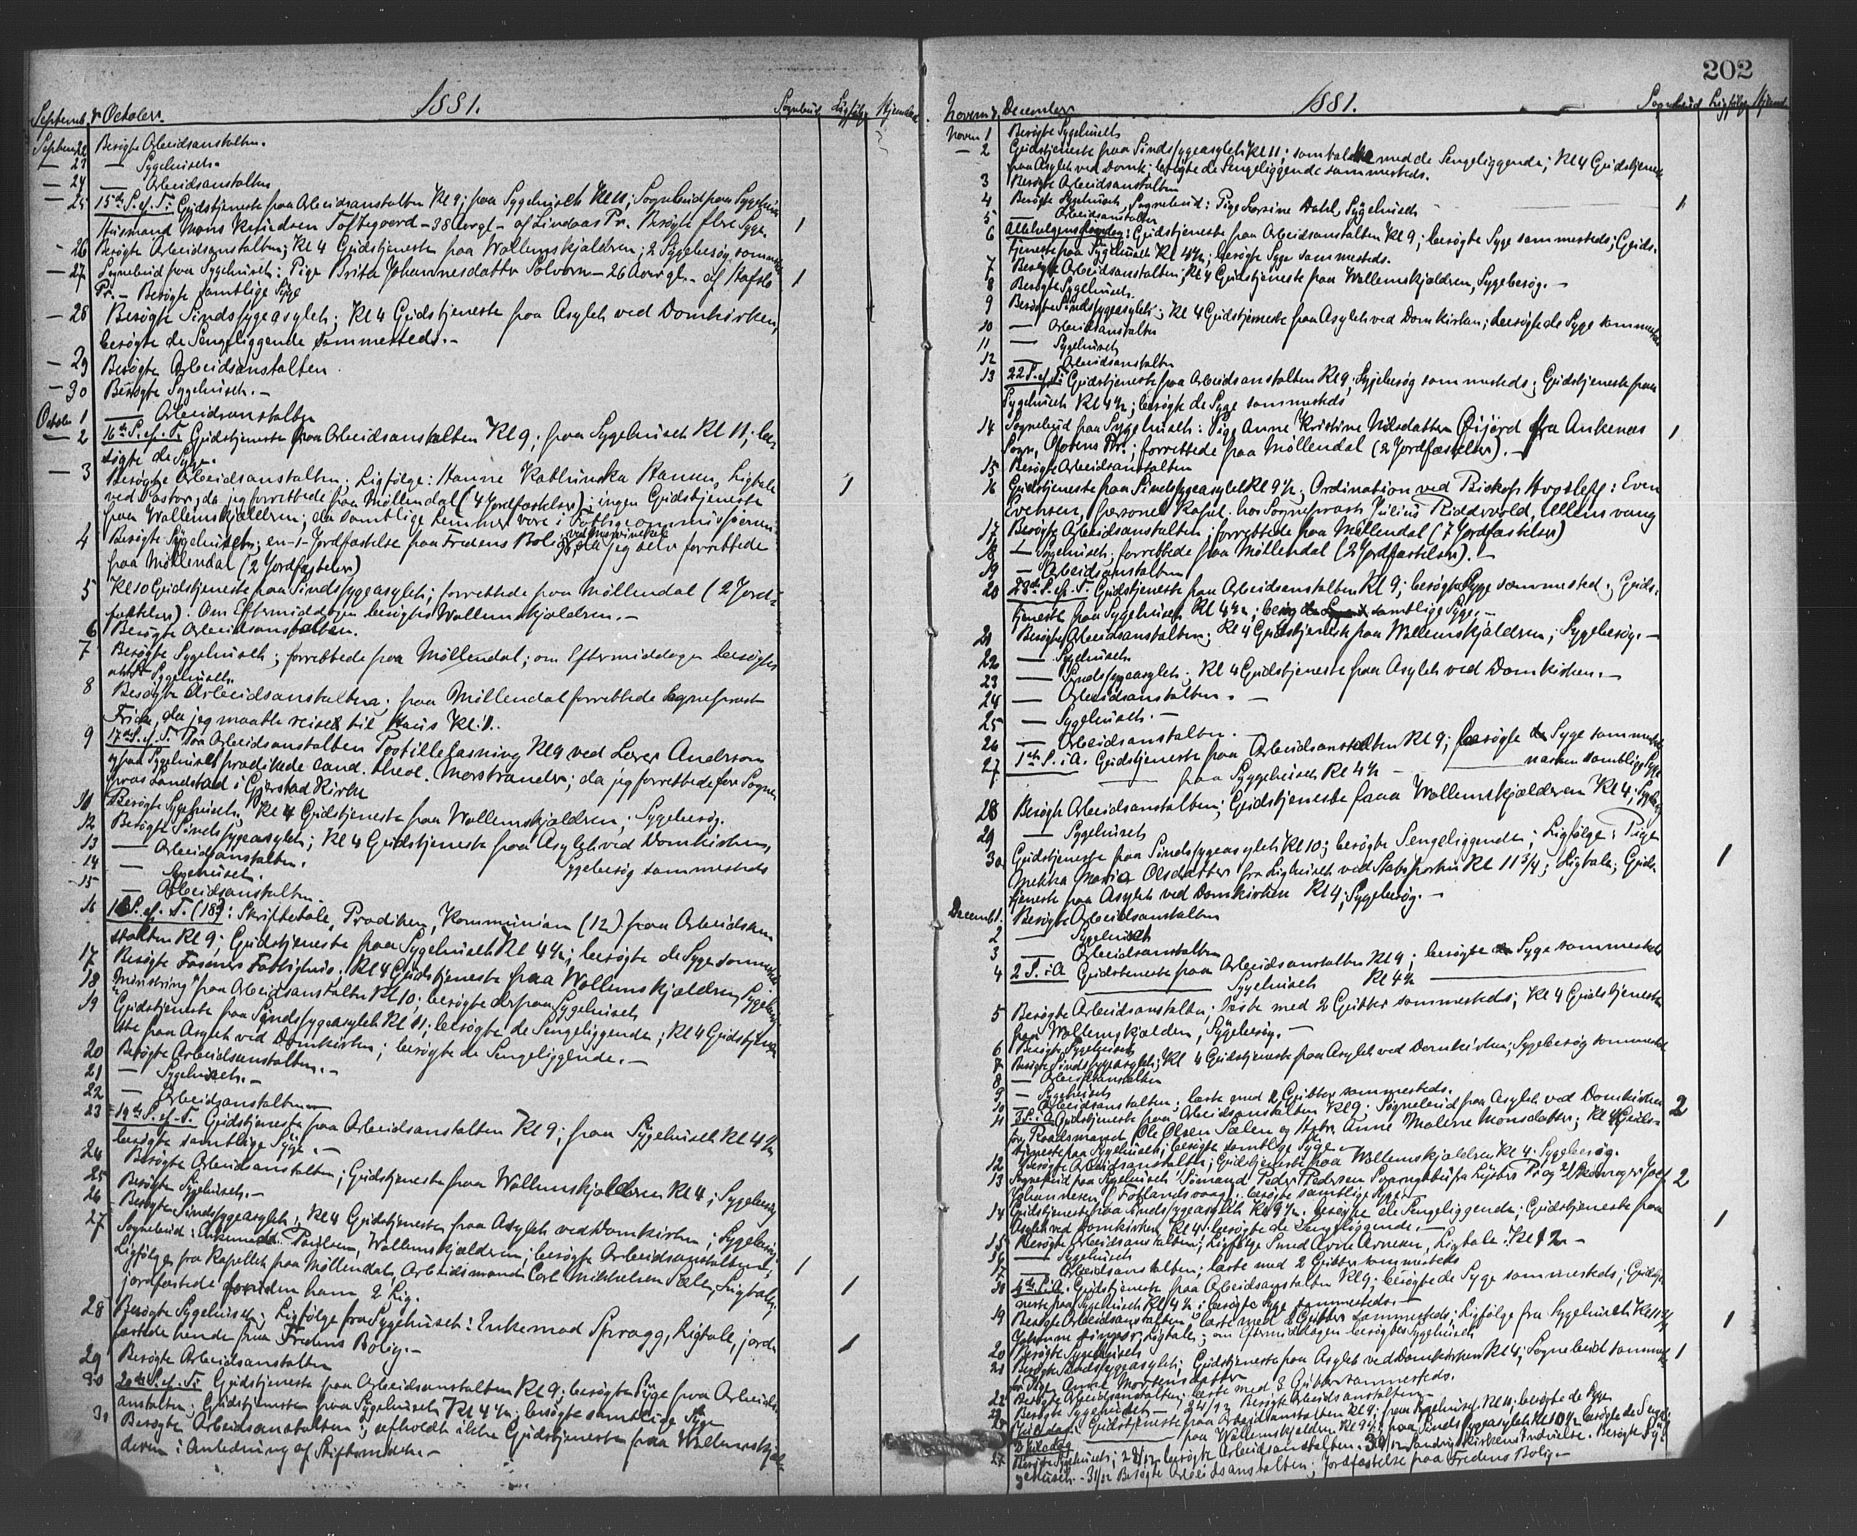 202
1881.
Septemb. & October.
Sognebud Ligfølge Skjænket
Septem 22 Besøgte Arbeidsanstalten.
— 23 — Sygehuset.
— 24 — Arbeidsanstalten
— 25 15de S. ef. Tr. Gudstjeneste paa Arbeidsanstalten Kl 9; paa Sygehuset Kl 11; Sognebud paa Sygehus
Husmand Mons Toftegaard — 38 Aar gl — af Lindaas Pr. Besøgte flere Syge. 1
— 26 Besøgte Arbeidsanstalten; Kl 4 Gudstjeneste paa Wollemskjælderen; 2 Sygebesøg sammesteds
— 27 Sognebud paa Sygehuset: Pige Brita Johannesdatter Solvorn — 26 Aar gl — af Hafslo 1
Pr. — Besøgte samtlige Syge
— 28 Besøgte Sindssygeasylet; Kl 4 Gudstjeneste paa Asylet ved Domkirken,
besøgte de Sengeliggende sammesteds. —
— 29 Besøgte Arbeidsanstalten
— 30 Besøgte Sygehuset. —
October 1 — Arbeidsanstalten
— 2 16de S. ef. Tr. Gudstjeneste paa Arbeidsanstalten Kl 9; paa Sygehuset Kl 11; be-
søgte de Syge.
— 3 Besøgte Arbeidsanstalten. Ligfølge: Hanne Kathinka Hansen, Ligtale 1
ved Pastor, da jeg forrettede paa Møllendal (4 Jordfæstelser); ingen Gudstjeneste
paa Wollemskjælderen; da samtlige Lemmer vare i Fattigcommissionen
4 Besøgte Sygehuset; en Jordfæstelse paa Fredens Bolig, da jeg selv forrettede
paa Møllendal (2 Jordfæstelser)
5 Kl 10 Gudstjeneste paa Sindssygeasylet; forrettede paa Møllendal (2 Jord-
fæstelser). Om Eftermiddagen besøgtes Wollemskjælderen. —
6 Besøgte Arbeidsanstalten.
7 Besøgte Sygehuset; forrettede paa Møllendal; om Eftermiddagen besøgtes
atter Sygehuset.
8 Besøgte Arbeidsanstalten; paa Møllendal forrettede Sogneprest
Frich, da jeg maatte reise til Haus Kl 1.
9 17de S. ef. T. Paa Arbeidsanstalten Postillelæsning Kl 9 ved Lærer Anderson
og paa Sygehuset prædikede Cand. theol. Morstrander, da jeg forrettede for Sogne-
prest Landstad i Gjerstad Kirke
10 Besøgte Sygehuset; Kl 4 Gudstjeneste paa Wollemskjælderen; Sygebesøg.
12 Besøgte Sindssygeasylet; Kl 4 Gudstjeneste paa Asylet ved Domkirken,
13 — Arbeidsanstalten. Sygebesøg sammesteds
14 — Sygehuset.
15 — Arbeidsanstalten.
16 S. ef. T. (18de): Skriftetale, Prædiken, Kommunion (12) paa Arbeidsan-
stalten Kl 9; Gudstjeneste paa Sygehuset Kl 4½; besøgte de Syge sammesteds
17 Besøgte Fattighus; Kl 4 Gudstjeneste paa Wollemskjælderen, Sygebesøg
18 paa Arbeidsanstalten Kl 10; besøgte derpaa Sygehuset
19 Gudstjeneste paa Sindssygeasylet Kl 11; besøgte de Sengeliggende; Kl 4 Gudstjene-
ste paa Asylet ved Domkirken; besøgte de Sengeliggende. —
20 Besøgte Arbeidsanstalten. —
21 — Sygehuset. —
22 — Arbeidsanstalten —
23 19de S. ef. T. Gudstjeneste paa Arbeidsanstalten Kl 9; paa Sygehuset Kl 4½
besøgte samtlige Syge. —
24 Besøgte Arbeidsanstalten; Gudstjeneste paa Wollemskjælderen Kl 4; Sygebesøg
25 Besøgte Sygehuset. —
26 Besøgte Sindssygeasylet; Kl 4 Gudstjeneste paa Asylet ved Domkirken; Sygebesøg
27 Sognebud: Enkemand Paulsen, Wollemskjælderen; besøgte Arbeidsanstalten; 1
Ligfølge fra Kapellet paa Møllendal, Arbeidsmand Carl Mikkelsen Sælen, Ligtale,
jordfæstede foruden ham 2 Lig. 1
28 Besøgte Sygehuset; Ligfølge fra Sygehuset: Enkemad Spragg, Ligtale, jord-
fæstede hende paa Fredens Bolig. — 1
29 Besøgte Arbeidsanstalten
30 20de S. ef. Tr. Gudstjeneste paa Arbeidsanstalten Kl 9; besøgte Syge paa Arbeids-
anstalten; Gudstjeneste paa Sygehuset Kl 4½; besøgte samtlige Syge
31 Besøgte Arbeidsanstalten; afholdt ikke Gudstjeneste paa Wollemskjæl-
deren i Anledning af —
1881.
Novemb. & December
Sognebud Ligfølge Skjænk.
Novem 1 Besøgte Sygehuset
— 2 Gudstjeneste paa Sindssygeasylet Kl 11; samtalte med de Sengeliggende; Kl 4 Gudstjeneste
paa Asylet ved Domk; besøgte de Sengeliggende sammesteds.
3 Besøgte Arbeidsanstalten
4 Besøgte Sygehuset, Sognebud: Pige Lorsine Dahl, Sygehuset 1
5 — Arbeidsanstalten
6 Allehelgens Søndag: Gudstjeneste paa Arbeidsanstalten Kl 9; besøgte Syge sammesteds; Guds-
tjeneste paa Sygehuset Kl 4½; besøgte Syge sammesteds.
7 Besøgte Arbeidsanstalten; Kl 4 Gudstjeneste paa Wollemskjælderen, Sygebesøg. —
8 Besøgte Sygehuset.
9 Besøgte Sindssygeasylet; Kl 4 Gudstjeneste paa Asylet ved Domkirken; besøgte de Syge sammesteds
10 — Arbeidsanstalten
11 — Sygehuset
12 — Arbeidsanstalten
13 22 S. ef. Tr. Gudstjeneste paa Arbeidsanstalten Kl 9, Sygebesøg sammesteds; Gudstjeneste paa
Sygehuset Kl 4½; besøgte de Syge sammesteds
14 Sognebud paa Sygehuset: Pige Anne Kristine Nilsdatter Øijord fra Ankenes 1
Sogn, Ofotens Pr.; forrettede paa Møllendal (2 Jordfæstelser). —
15 Besøgte Arbeidsanstalten
16 Gudstjeneste paa Sindssygeasylet Kl 9½, Ordination ved Biskop Hvoslef: Even
Evensen, personel Kapel. hos Sogneprest Julius Riddervold, Ullensvang
17 Besøgte Arbeidsanstalten; forrettede paa Møllendal (7 Jordfæstelser)
18 — Sygehuset; forrettede paa Møllendal (2 Jordfæstelser). —
19 — Arbeidsanstalten
20 23de S. ef. T. Gudstjeneste paa Arbeidsanstalten Kl 9; besøgte Syge sammesteds; Guds-
tjeneste paa Sygehuset Kl 4½; samtlige Syge. —
21 Besøgte Arbeidsanstalten; Kl 4 Gudstjeneste paa Wollemskjælderen; Sygebesøg. —
22 — Sygehuset
23 — Sindssygeasylet. Kl 4 Gudstjeneste paa Asylet ved Domkirken. —
24 — Arbeidsanstalten. —
25 — Sygehuset. —
26 — Arbeidsanstalten. —
27 1ste S. i A. Gudstjeneste paa Arbeidsanstalten Kl 9; besøgte de Syge sammesteds
— paa Sygehuset Kl 4½ — næsten samtlige Syge
28 Besøgte Arbeidsanstalten; Gudstjeneste paa Wollemskjælderen Kl 4; Sygebesøg
29 — Sygehuset
30 Gudstjeneste paa Sindssygeasylet Kl 10; besøgte Sengeliggende; Ligfølge: Pige 1
Maria Olsdatter fra Lighuset ved Stadsporten Kl 11¾; Ligtale; Guds-
tjeneste paa Asylet ved Domkirken Kl 4; Sygebesøg. —
Decemb 1. Besøgte Arbeidsanstalten
2 — Sygehuset
3 — Arbeidsanstalten
4 2 S. i A Gudstjeneste paa Arbeidsanstalten Kl 9; besøgte de Syge sammesteds
— Sygehuset Kl 4½ —
5 Besøgte Arbeidsanstalten, læste med 2 Gutter sammesteds; Kl 4 Gudstjeneste
paa Wollemskjælderen, Sygebesøg. —
6 Besøgte Sygehuset
7 Besøgte Sindssygeasylet; Kl 4 Gudstjeneste paa Asylet ved Domkirken; Sygebesøg sammesteds
8 — Arbeidsanstalten
9 — Sygehuset
10 — Arbeidsanstalten; læste med 2 Gutter sammesteds.
11 3 S. i A Gudstjeneste paa Arbeidsanstalten Kl 9; Sognebud paa Asylet ved Domkirken 2
for Ole Olsen Sælen og Anne Malene Monsdatter; Kl 4½ Guds-
tjeneste paa Sygehuset; besøgte samtlige Syge. —
12 Besøgte Arbeidsanstalten; Gudstjeneste paa Wollemskjælderen Kl 4. Sygebesøg.
13 Sognebud paa Sygehuset: Sømand Peder Pedersen 2
Johannesen, besøgte samtlige Syge.
14 Gudstjeneste paa Sindssygeasylet Kl 9½, besøgte de Sengeliggende; Gudstjeneste paa
Asylet ved Domkirken Kl 4; besøgte de Sengeliggende. —
15 Besøgte Arbeidsanstalten; Ligfølge Smed Arne Arnesen, Ligtale. Kl 12 — 1
16 — Sygehuset
17 — Arbeidsanstalten; læste med 2 Gutter sammesteds
18 4de S. i A. Gudstjeneste paa Arbeidsanstalten Kl 9; besøgte de Syge sammesteds; Gudstje-
neste paa Sygehuset Kl 4½; besøgte Syge sammesteds. —
19 Besøgte Arbeidsanstalten, læste med 2 Gutter sammesteds; Ligfølge fra Sygehuset 1
Ligtale; om Eftermiddagen besøgtes Sygehuset
20 Besøgte Sygehuset
21 Besøgte Sindssygeasylet; Gudstjeneste paa Asylet ved Domkirken Kl 4; Sognebud sammesteds 1
for Pige Anne Mortensdatter
22 Besøgte Arbeidsanstalten; læste med 2 Gutter sammesteds.
23 Besøgte Sygehuset — 24/12 Besøgte Arbeidsanstalten
Juledag. Gudstjeneste paa Arbeidsanstalten Kl 9; paa Sygehuset Kl 11; besøgte de Syge
2 Juledag — paa Wollemskjælderen Kl 9½; paa Sindssygeasylet Kl 10½ besøgte de Sengel.
27 Besøgte Sygehuset; besøgte Arbeidsanstalten. 30/12 Kirkens Indvielse. Besøgte Sy-
gehuset. — 31/12 Besøgte Arbeidsanstalten; Jordfæstelse paa Fredens Bolig —